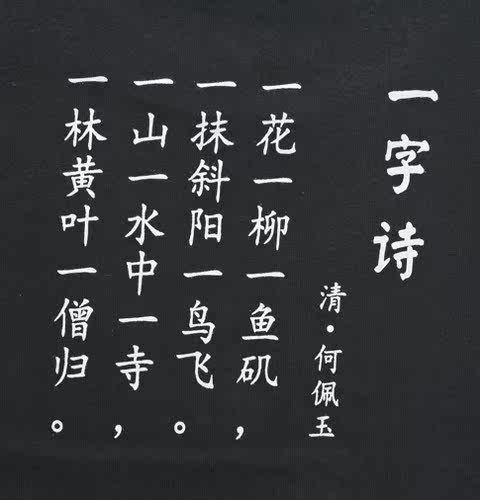 一字诗
清·何佩玉
一花一柳一鱼矶，
一抹斜阳一鸟飞。
一山一水中一寺，
一林黄叶一僧归。